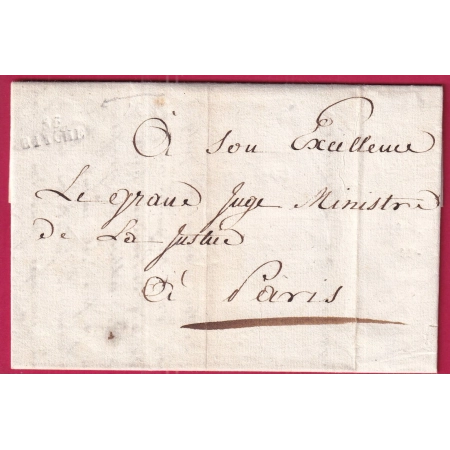 À son Excellence
Le grand Juge Ministre
de La Justice
À Paris